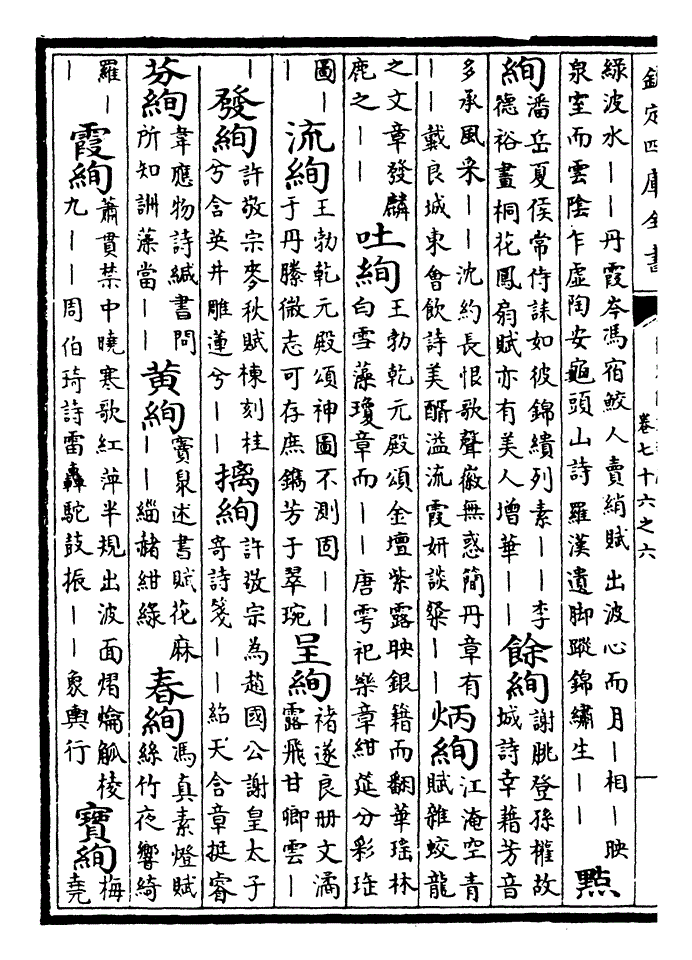 欽定四庫全書
卷七十六之六
綠波水｜｜丹霞岑馮宿鮫人賣綃賦 出波心而月｜相｜映
泉室而雲陰乍虛陶安龜頭山詩 羅漢遺脚蹤錦繡生｜｜
點
絢
潘岳夏侯常侍誄如彼錦繢列素｜｜李
德裕畫桐花鳳扇賦亦有美人增華｜｜
餘絢
謝朓登孫權故
城詩幸藉芳音
多承風采｜｜沈約長恨歌聲徽無惑簡丹章有
｜｜戴良城東會飲詩美醑溢流霞妍談粲｜｜
炳絢
江淹空青
賦雜蛟龍
之文章發麟
鹿之｜｜
吐絢
王勃乾元殿頌金壇紫露映銀籍而翻華瑤林
白雪藻瓊章而｜｜唐雩祀樂章紺筵分彩珤
圖｜
｜
流絢
王勃乾元殿頌神圖不測固｜｜
于丹縢微志可存庶鐫芳于翠琬
呈絢
褚遂良册文潏
露飛甘卿雲｜
｜
發絢
許敬宗麥秋賦棟刻桂
兮含英井雕蓮兮｜｜
摛絢
許敬宗為趙國公謝皇太子
寄詩箋｜｜紹天含章挺睿
芬絢
韋應物詩緘書問
所知詶藻當｜｜
黃絢
竇臮述書賦花麻
｜｜緇赭紺綠
春絢
馮真素燈賦
絲竹夜響綺
羅｜
｜
霞絢
蕭貫禁中曉寒歌紅萍半規出波面熠爚觚棱
九｜｜周伯琦詩雷轟駝鼓振｜｜象輿行
寶絢
梅
堯